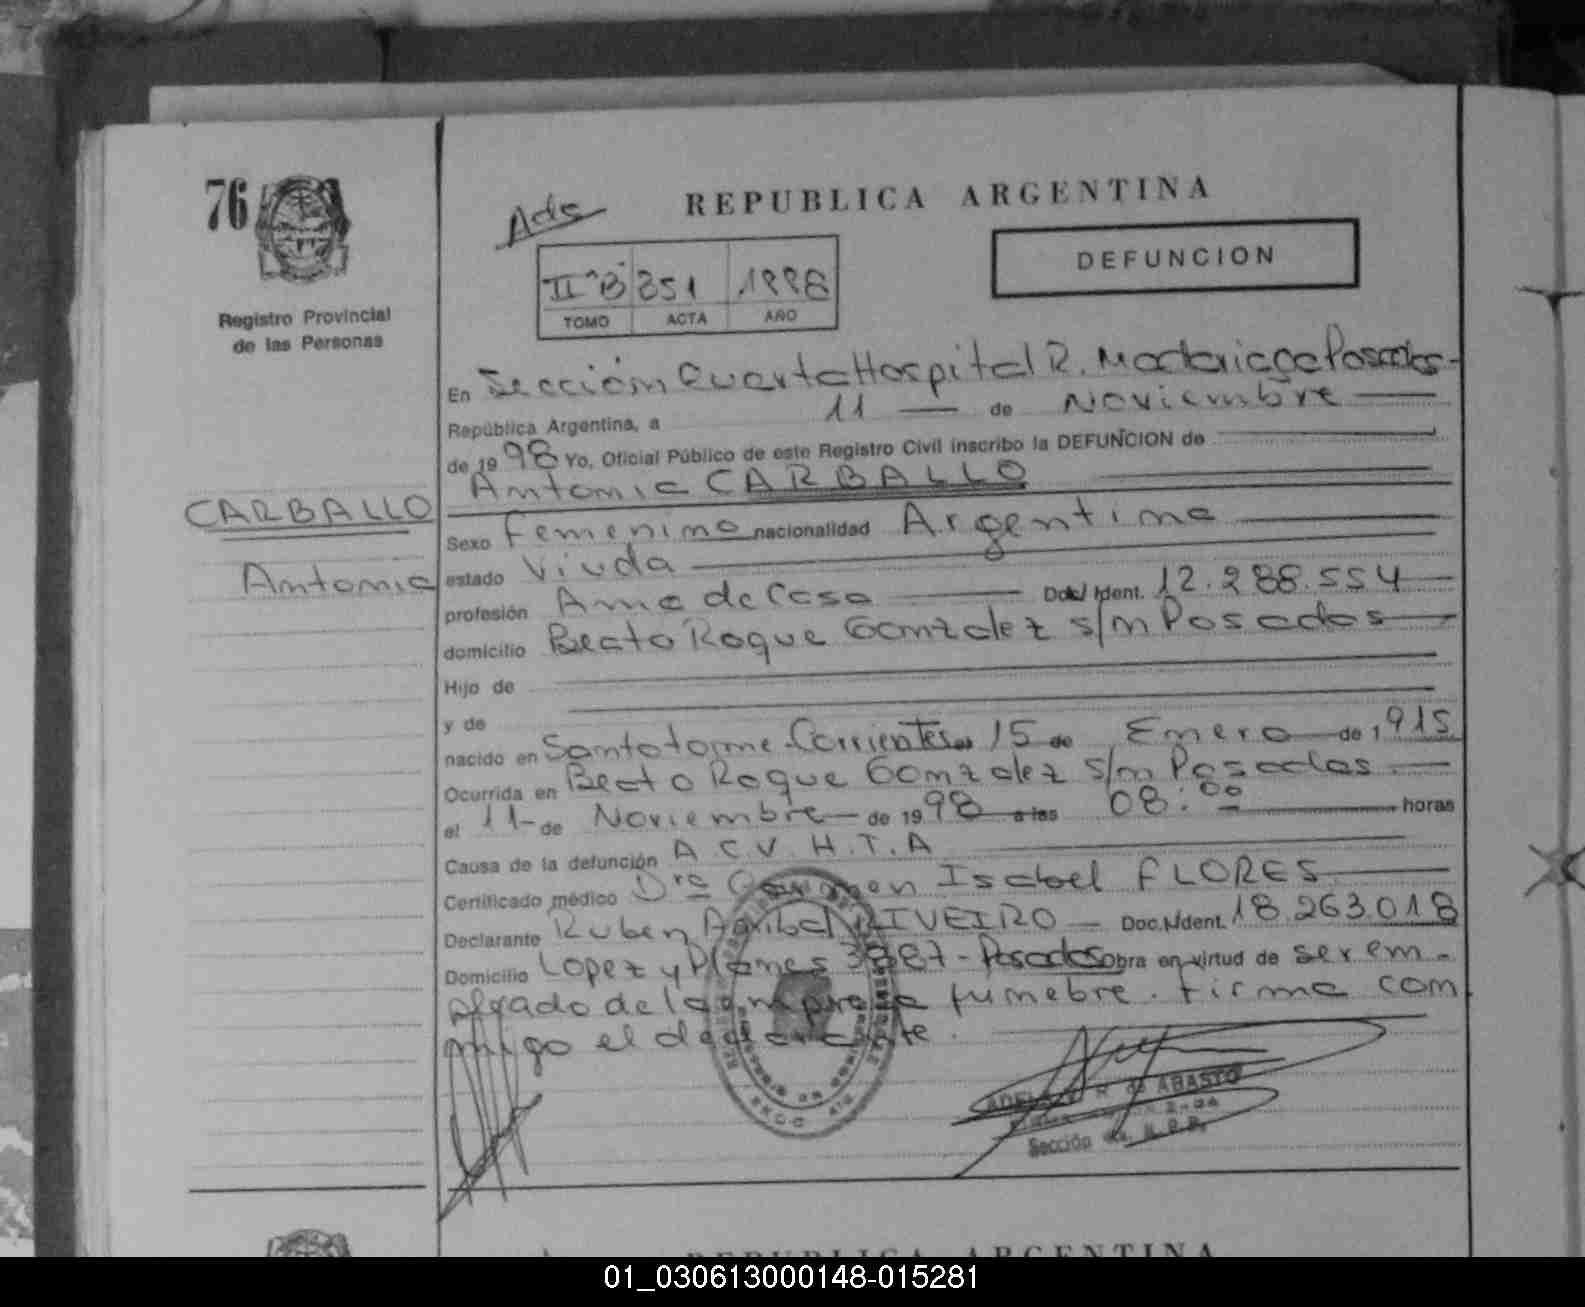 76
Registro Provincial
de las Personas
REPUBLICA ARGENTINA
DEFUNCION
II "B" 351 1998
TOMO ACTA AÑO
En Sección Cuarta Hospital R. Madariaga Posadas-
República Argentina, a 11 de Noviembre
de 1998 Yo, Oficial Público de este Registro Civil inscribo la DEFUNCION de
Antonia CARBALLO
CARBALLO
Antonia
Sexo femenino nacionalidad Argentina
estado Viuda
profesión Ama de Casa Doc. Ident. 12.288.554
domicilio Beato Roque Gonzalez s/n Posadas
Hijo de
y de
nacido en Santo tome-Corrientes el 15 de Enero de 1915
Ocurrida en Beato Roque Gonzalez s/n Posadas
el 11 de Noviembre de 1998 a las 08:00 horas
Causa de la defunción A C.V. H.T.A
Certificado médico Dra Carmen Isabel FLORES
Declarante Ruben Anibal RIVEIRO Doc. Ident. 18.263.018
Domicilio Lopez y Planes 3887-Posadas obra en virtud de ser em-
pleado de la empresa fúnebre. firma con
migo el declarante.
ADELA R de ABASTO
Sección 4a. R.P.P.
REPUBLICA ARGENTINA
01_030613000148-015281